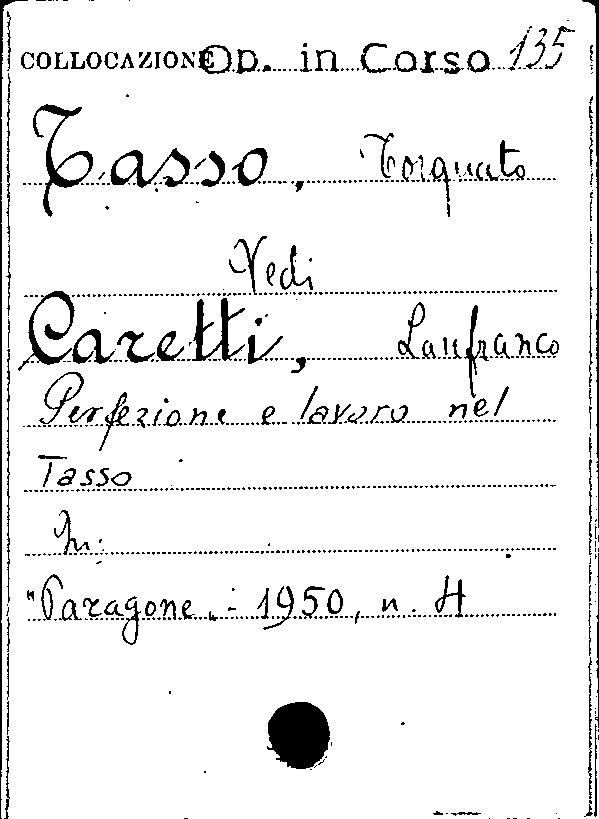 COLLOCAZIONE Op. in Corso 135
Tasso, Torquato
Vedi
Caretti, Lanfranco
Perfezione e lavoro nel
Tasso
In:
"Paragone" - 1950, n. 4